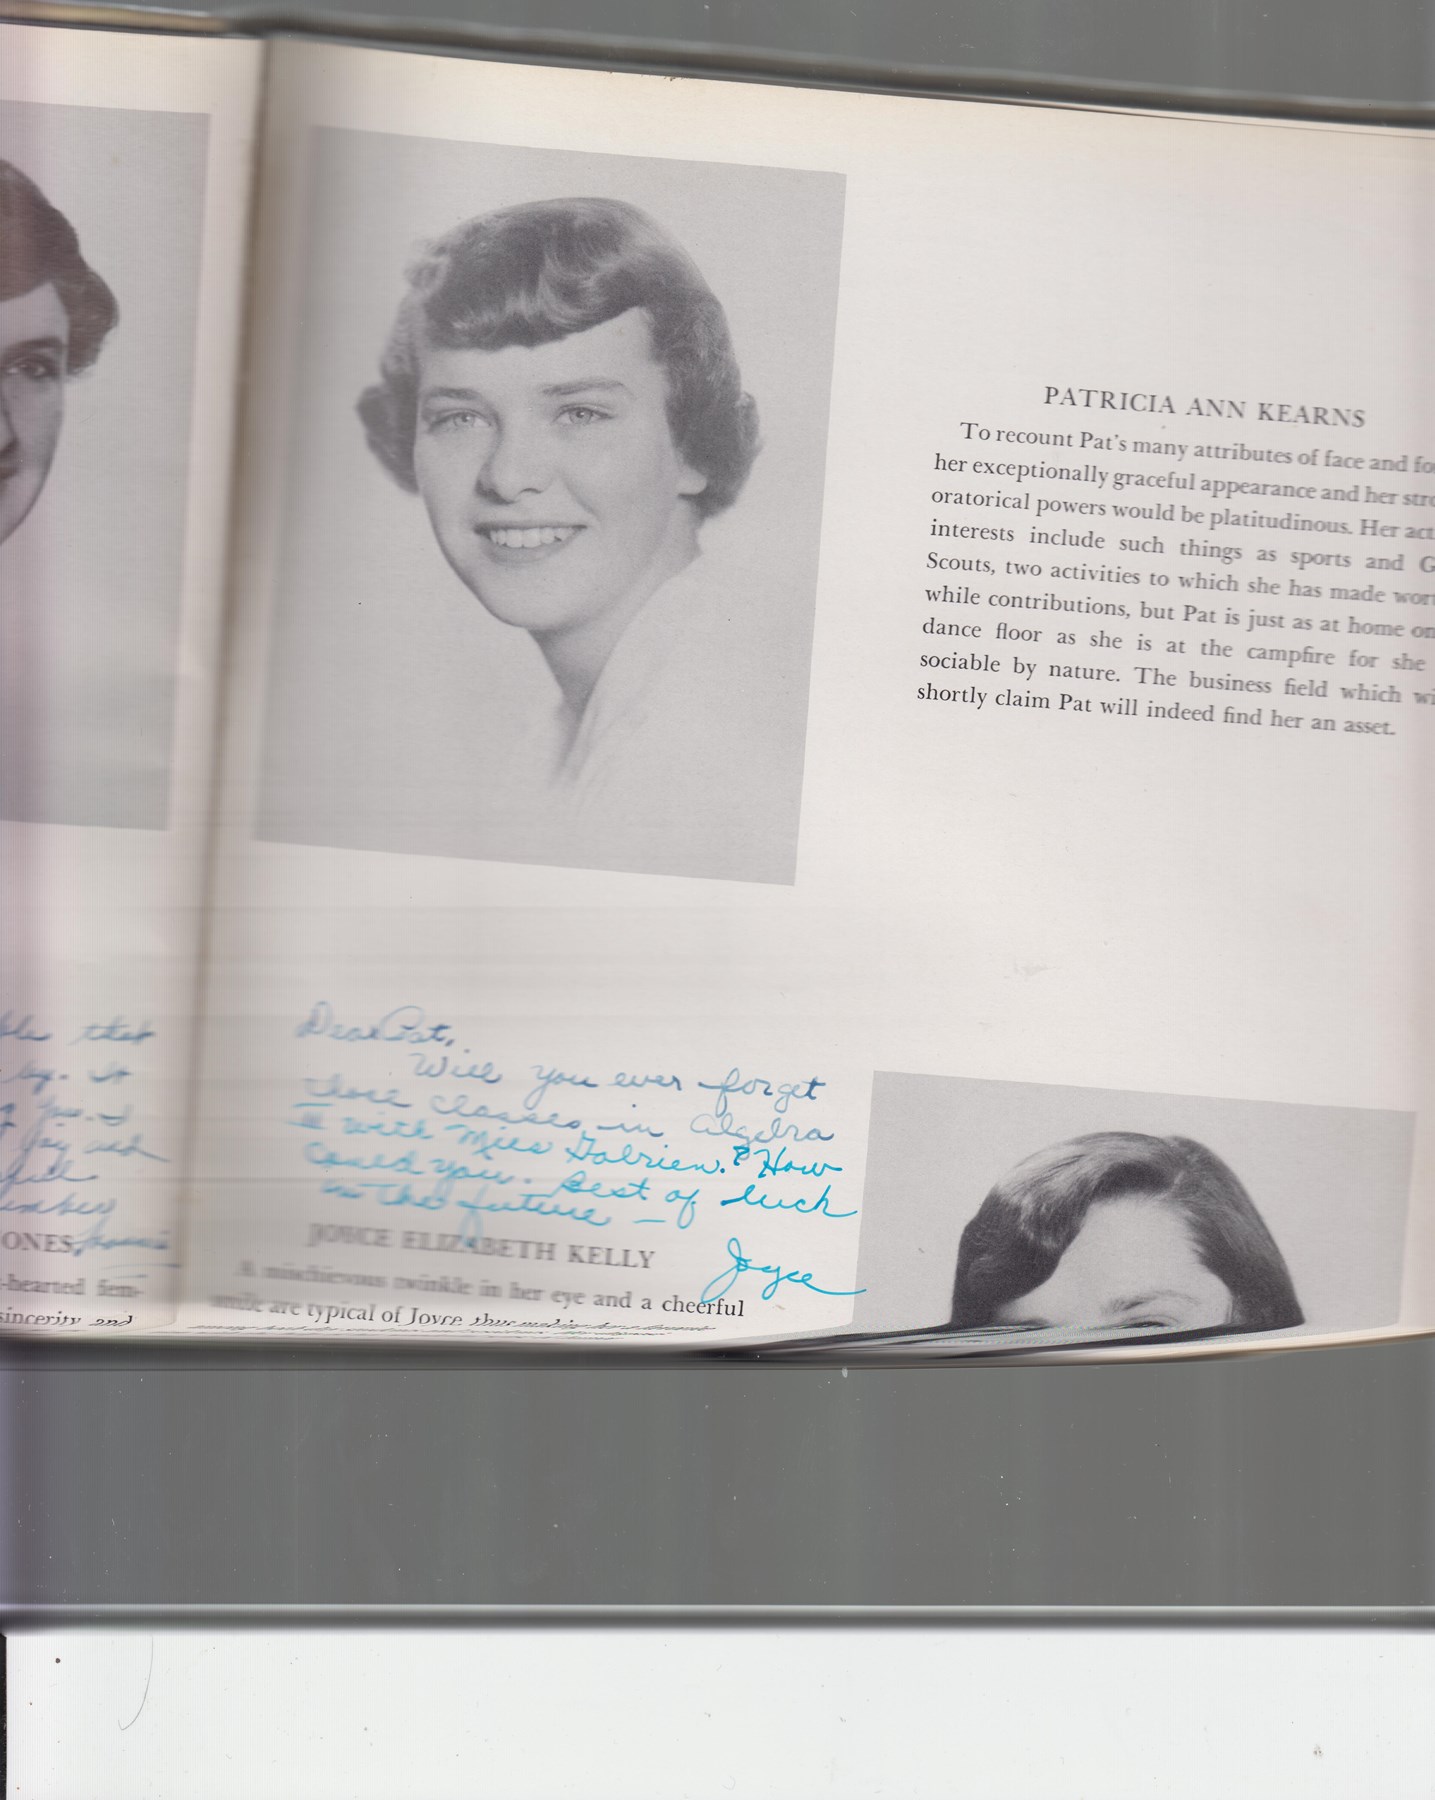 PATRICIA ANN KEARNS
To recount Pat's many attributes of face and fo
her exceptionally graceful appearance and her stro
oratorical powers would be platitudinous. Her act
interests include such things as sports and G
Scouts, two activities to which she has made wor
while contributions, but Pat is just as at home on
dance floor as she is at the campfire for she
sociable by nature. The business field which wi
shortly claim Pat will indeed find her an asset.
that
by. It
joy and
ONES,
-hearted fem-
sincerity and
Dear Pat,
Will you ever forget
those classes in algebra
III with Miss How
could you. Best of luck
in the future —
Joyce
JOYCE ELIZABETH KELLY
A mischievous twinkle in her eye and a cheerful
smile are typical of Joyce thus making her a